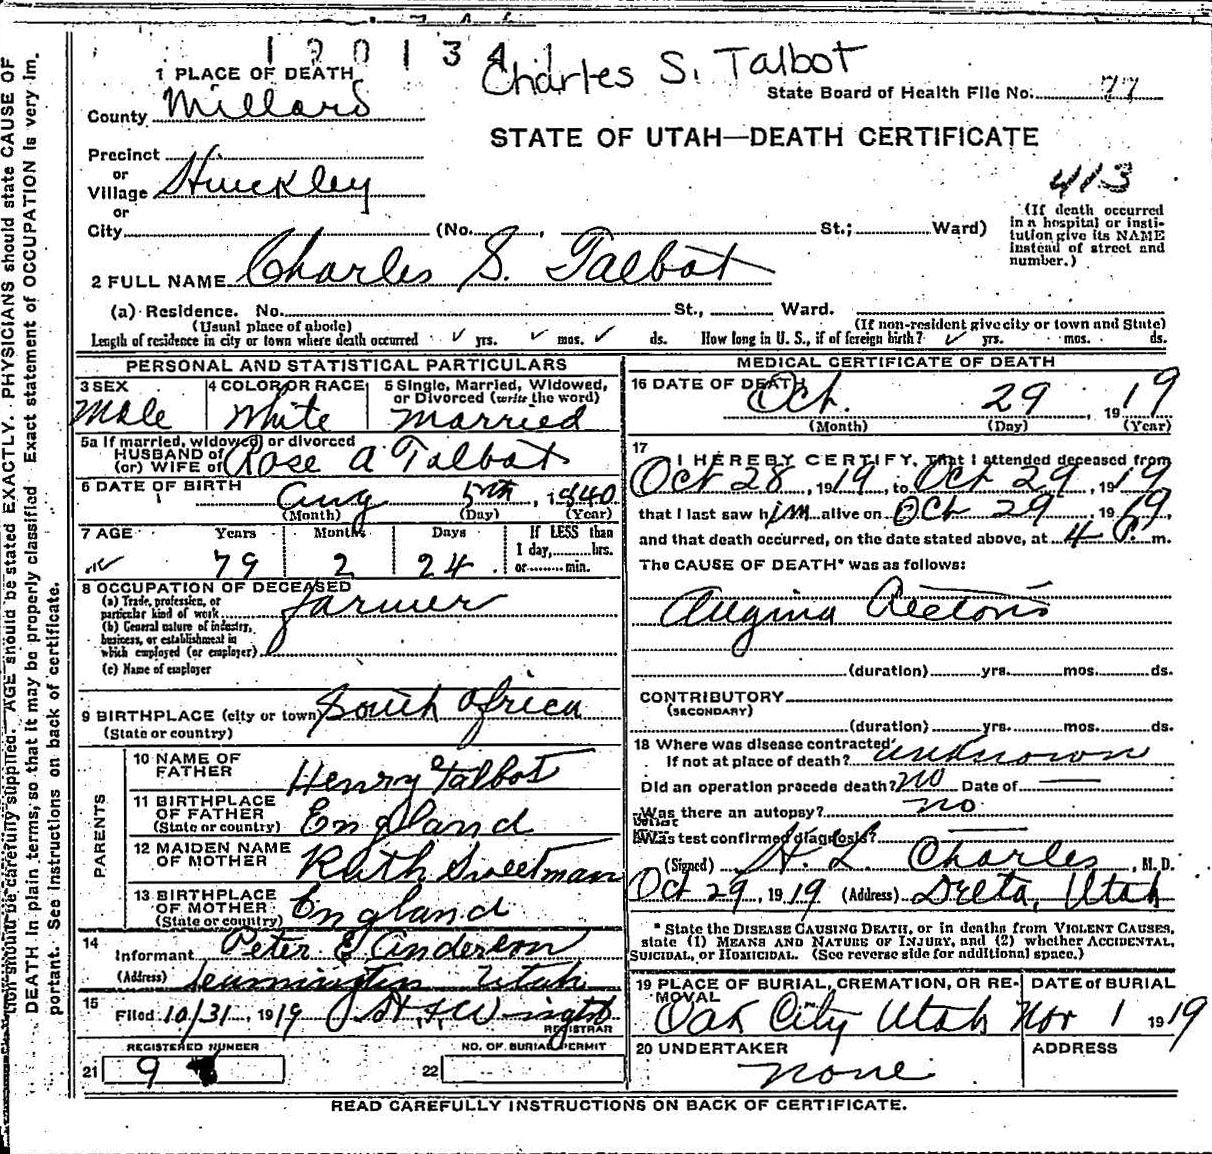 190134
Charles S. Talbot
1 PLACE OF DEATH
State Board of Health File No. 77
County Millard
STATE OF UTAH—DEATH CERTIFICATE
Precinct
or
Village Hinckley
413
or
City (No. , St.; Ward)
(If death occurred in a hospital or insti-
tution give its NAME
instead of street and
number.)
2 FULL NAME Charles S. Talbot
(a) Residence. No. St., Ward.
(Usual place of abode) (If non-resident give city or town and State)
Length of residence in city or town where death occurred ✓ yrs. ✓ mos. ✓ ds. How long in U. S., if of foreign birth? ✓ yrs. mos. ds.
PERSONAL AND STATISTICAL PARTICULARS
3 SEX 4 COLOR OR RACE 5 Single, Married, Widowed,
or Divorced (write the word)
Male White Married
5a If married, widowed, or divorced
HUSBAND of
(or) WIFE of Rose A Talbot
6 DATE OF BIRTH Aug 5th, 1840
(Month) (Day) (Year)
7 AGE Years Months Days If LESS than
1 day, hrs.
or min.
79 2 24
8 OCCUPATION OF DECEASED
(a) Trade, profession, or
particular kind of work farmer
(b) General nature of industry,
business, or establishment in
which employed (or employer)
(c) Name of employer
9 BIRTHPLACE (city or town) South Africa
(State or country)
PARENTS
10 NAME OF
FATHER Henry Talbot
11 BIRTHPLACE
OF FATHER England
(State or country)
12 MAIDEN NAME
OF MOTHER Ruth Sweetman
13 BIRTHPLACE
OF MOTHER England
(State or country)
14
Informant Peter E Anderson
(Address) Leamington Utah
15
Filed 10/31, 1919
REGISTRAR
REGISTERED NUMBER NO. OF BURIAL PERMIT
21 9 22
MEDICAL CERTIFICATE OF DEATH
16 DATE OF DEATH Oct. 29, 1919
(Month) (Day) (Year)
17
I HEREBY CERTIFY, That I attended deceased from
Oct 28, 1919, to Oct 29, 1919
that I last saw him alive on Oct 29 1919,
and that death occurred, on the date stated above, at 4 P. m.
The CAUSE OF DEATH* was as follows:
Angina
(duration) yrs. mos. ds.
CONTRIBUTORY
(SECONDARY)
(duration) yrs. mos. ds.
18 Where was disease contracted
If not at place of death? unknown
Did an operation precede death? no Date of —
Was there an autopsy? no
What
Was test confirmed diagnosis? —
(Signed) H. L Charles, M. D.
Oct 29, 1919 (Address) Delta, Utah
* State the DISEASE CAUSING DEATH, or in deaths from VIOLENT CAUSES,
state (1) MEANS AND NATURE OF INJURY, and (2) whether ACCIDENTAL,
SUICIDAL, or HOMICIDAL. (See reverse side for additional space.)
19 PLACE OF BURIAL, CREMATION, OR RE-
MOVAL
DATE of BURIAL
Oak City Utah Nov 1 1919
20 UNDERTAKER ADDRESS
none
READ CAREFULLY INSTRUCTIONS ON BACK OF CERTIFICATE.
tion should be carefully supplied. AGE should be stated EXACTLY. PHYSICIANS should state CAUSE OF
DEATH in plain terms, so that it may be properly classified. Exact statement of OCCUPATION is very im-
portant. See instructions on back of certificate.